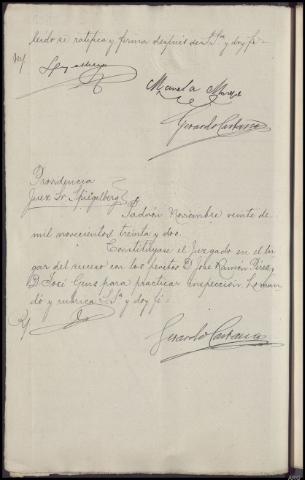 leido se ratifica y firma despues de S.Sª y doy fé.-
Manuela
Gerardo
Providencia
Juez Sr. Spiegelberg
Padrón Noviembre veinte de
mil novecientos treinta y dos.
Constitúyase el Juzgado en el lu-
gar del suceso con los peritos D. José Ramón Pérez y
D. José para practicar inspección. Lo man-
dó y rubrica S.Sª y doy fé.
Gerardo